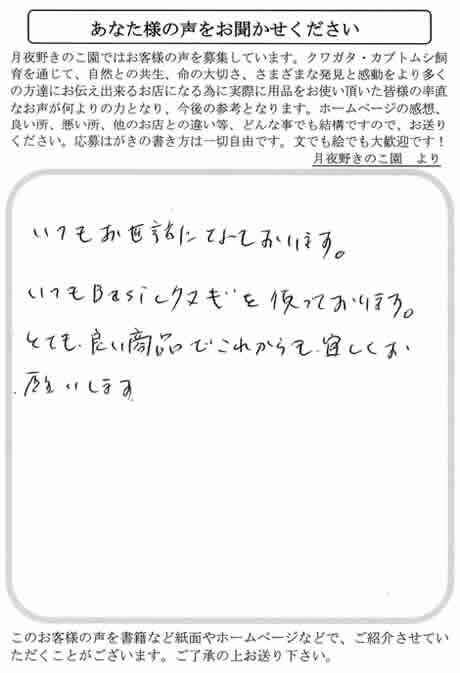 あなた様の声をお聞かせください
月夜野きのこ園ではお客様の声を募集しています。クワガタ・カブトムシ飼
育を通じて、自然との共生、命の大切さ、さまざまな発見と感動をより多く
の方達にお伝え出来るお店になる為に実際に用品をお使い頂いた皆様の率直
なお声が何よりの力となり、今後の参考となります。ホームページの感想、
良い所、悪い所、他のお店との違い等、どんな事でも結構ですので、お送り
ください。応募はがきの書き方は一切自由です。文でも絵でも大歓迎です！
月夜野きのこ園　より
いつもお世話になっております。
いつもBasicクヌギを使っております。
とても良い商品でこれからも宜しくお
願いします
このお客様の声を書籍など紙面やホームページなどで、ご紹介させてい
ただくことがございます。ご了承の上お送り下さい。